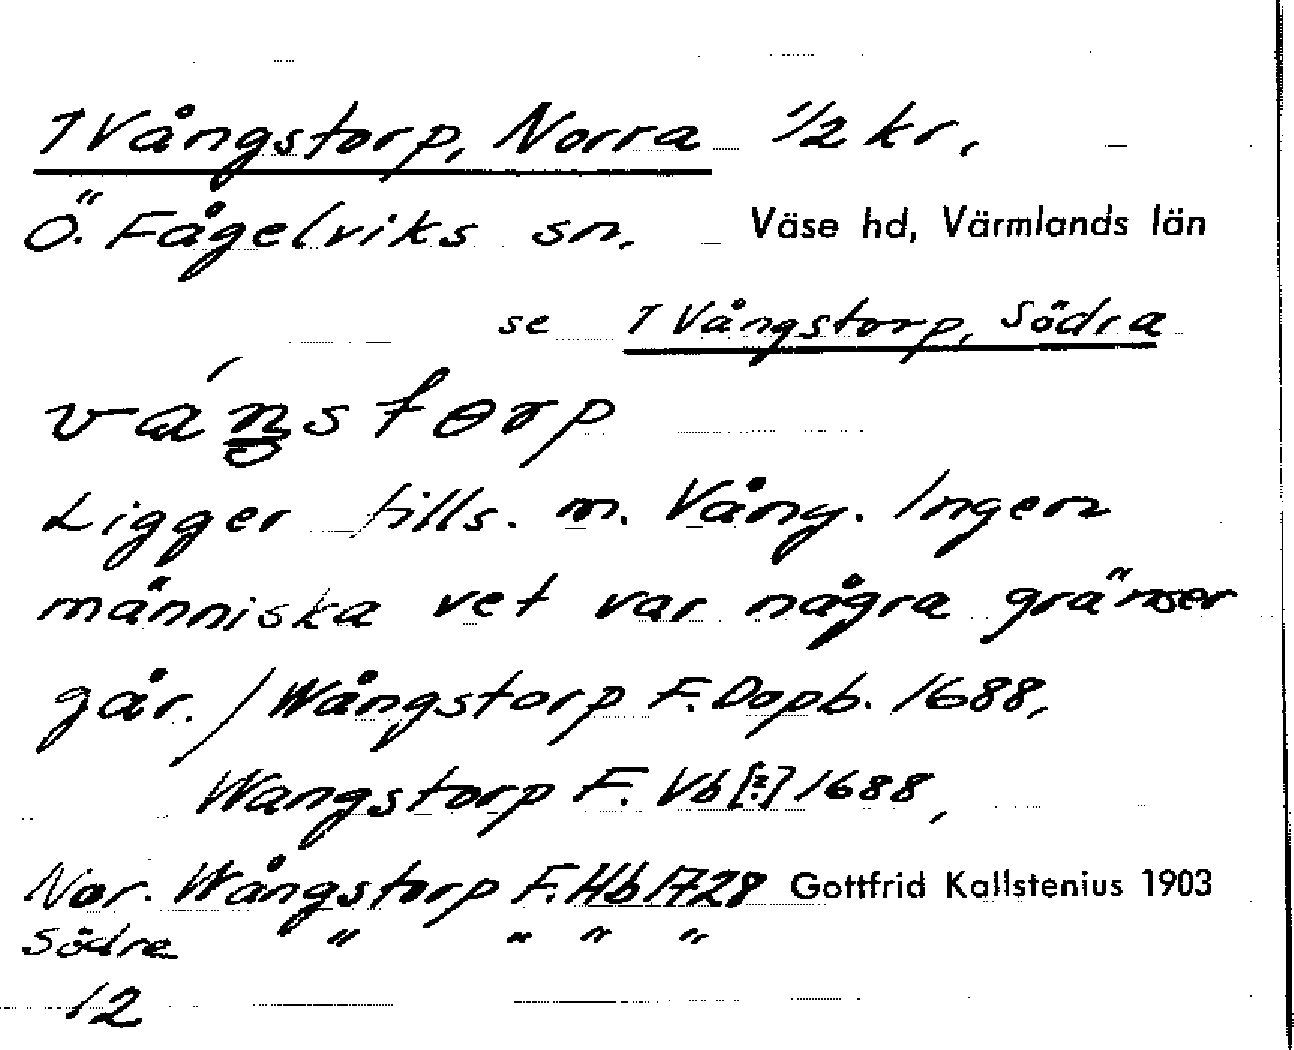 1 Vångstorp, Norra 1/2 kr,
Ö. Fågelviks sn. Väse hd, Värmlands län
se 1 Vångstorp, Södra
vánstorp
Ligger tills. m. Vång. Ingen
människa vet var några gränser
går. / Wångstorp F. Dopb. 1688,
Wangstorp F. Vb [?] 1688,
Nor. Wångstorp F. Hb 1728 Gottfrid Kallstenius 1903
Södre " " " "
12